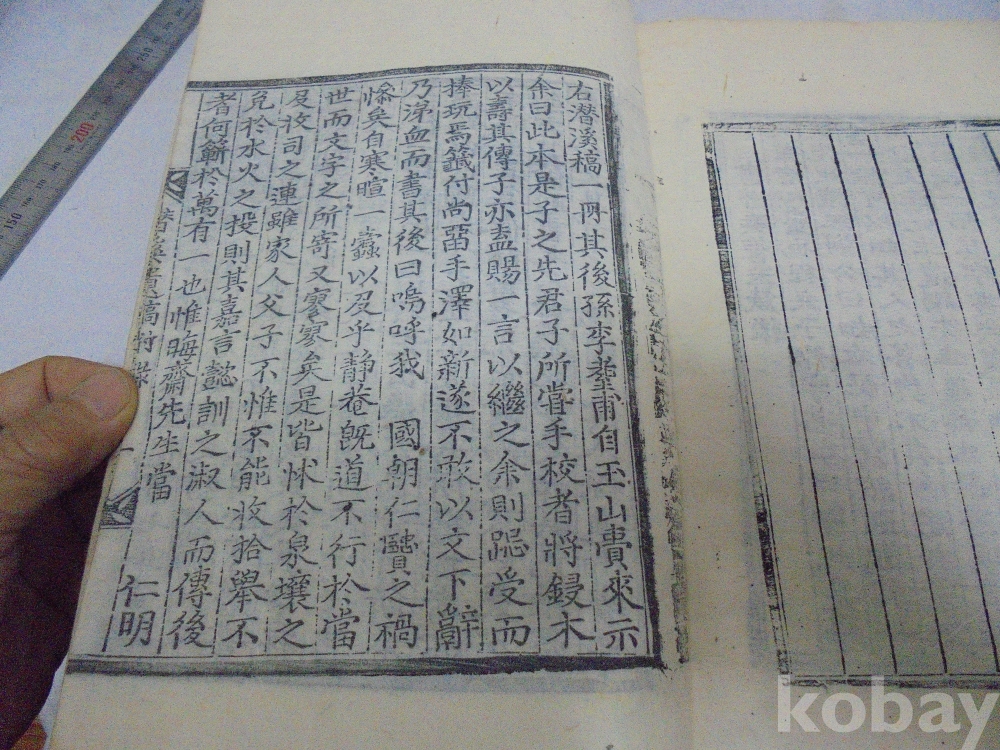 右潛溪稿一冊其後孫李𡊠甫自玉山賫來示
余曰此本是子之先君子所嘗手校者將鋟木
以壽其傳子亦盍賜一言以繼之余則跽受而
捧玩焉籤付尚留手澤如新遂不敢以文下辭
乃涕血而書其後曰嗚呼我 國朝仁賢之禍
慘矣自寒暄一蠹以及乎靜菴旣道不行於當
世而文字之所寄又寥寥矣是皆怵於泉壤之
及收司之連雖家人父子不惟不能收拾擧不
免於水火之投則其嘉言懿訓之淑人而傳後
者何嘗於萬有一也惟晦齋先生當 仁明
潛溪遺稿附錄
一
kobay
200
150